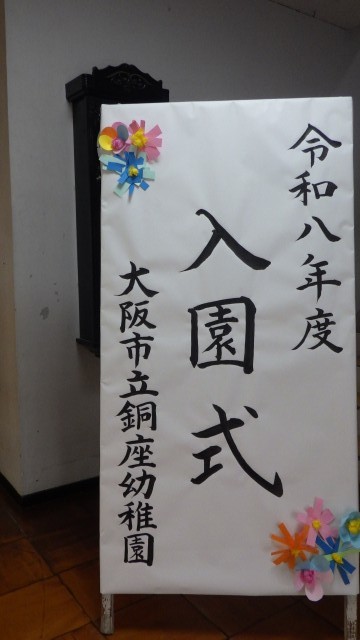 令和八年度
入園式
大阪市立銅座幼稚園